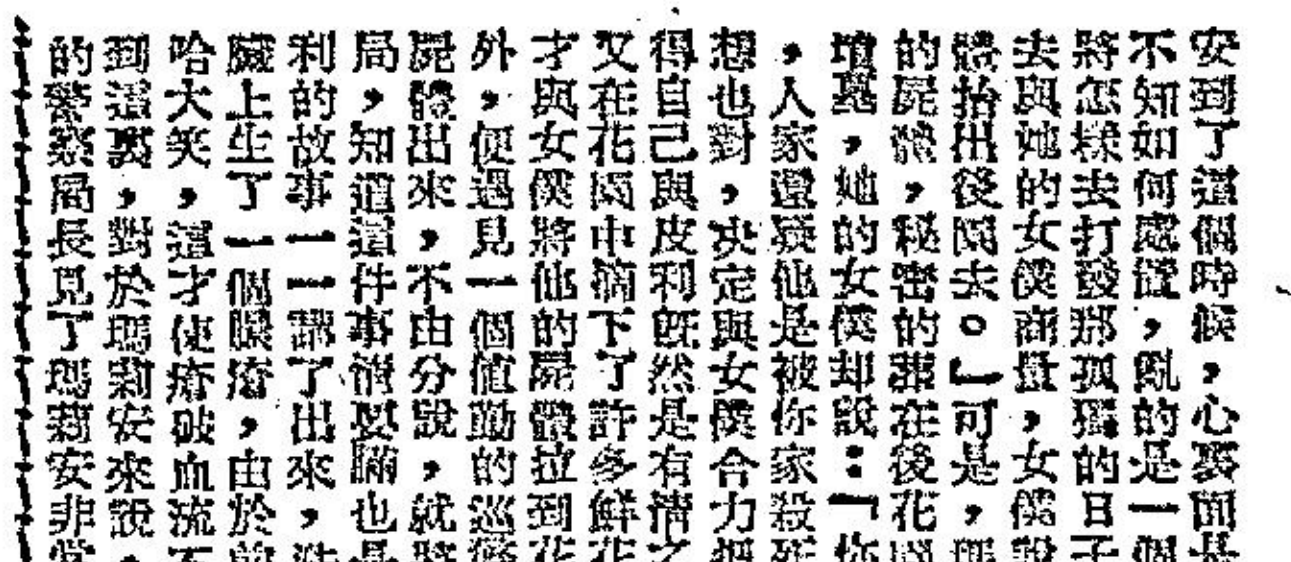 安到了這個時候，心裏面是
不知如何處置，亂的是一個
將怎樣去打發那孤獨的日子
去與她的女僕商量，女僕說
體抬出後園去。」可是，
的屍體，秘密的葬在後花園
墳墓，她的女僕却說：「你
，人家還疑他是被你家殺死
想也對，決定與女僕合力把
得自己與皮利旣然是有情之
又在花園中滴下了許多鮮花
才與女僕將他的屍體拉到花
外，便遇見一個值勤的巡
屍體出來，不由分說，就將
局，知道這件事情要瞞也是
利的故事一一說了出來，
臟上生了一個膿瘡，由於
哈大笑，這才使瘡破血流不
到這裏，對於瑪莉安來說，
的警察局長見了瑪莉安非常